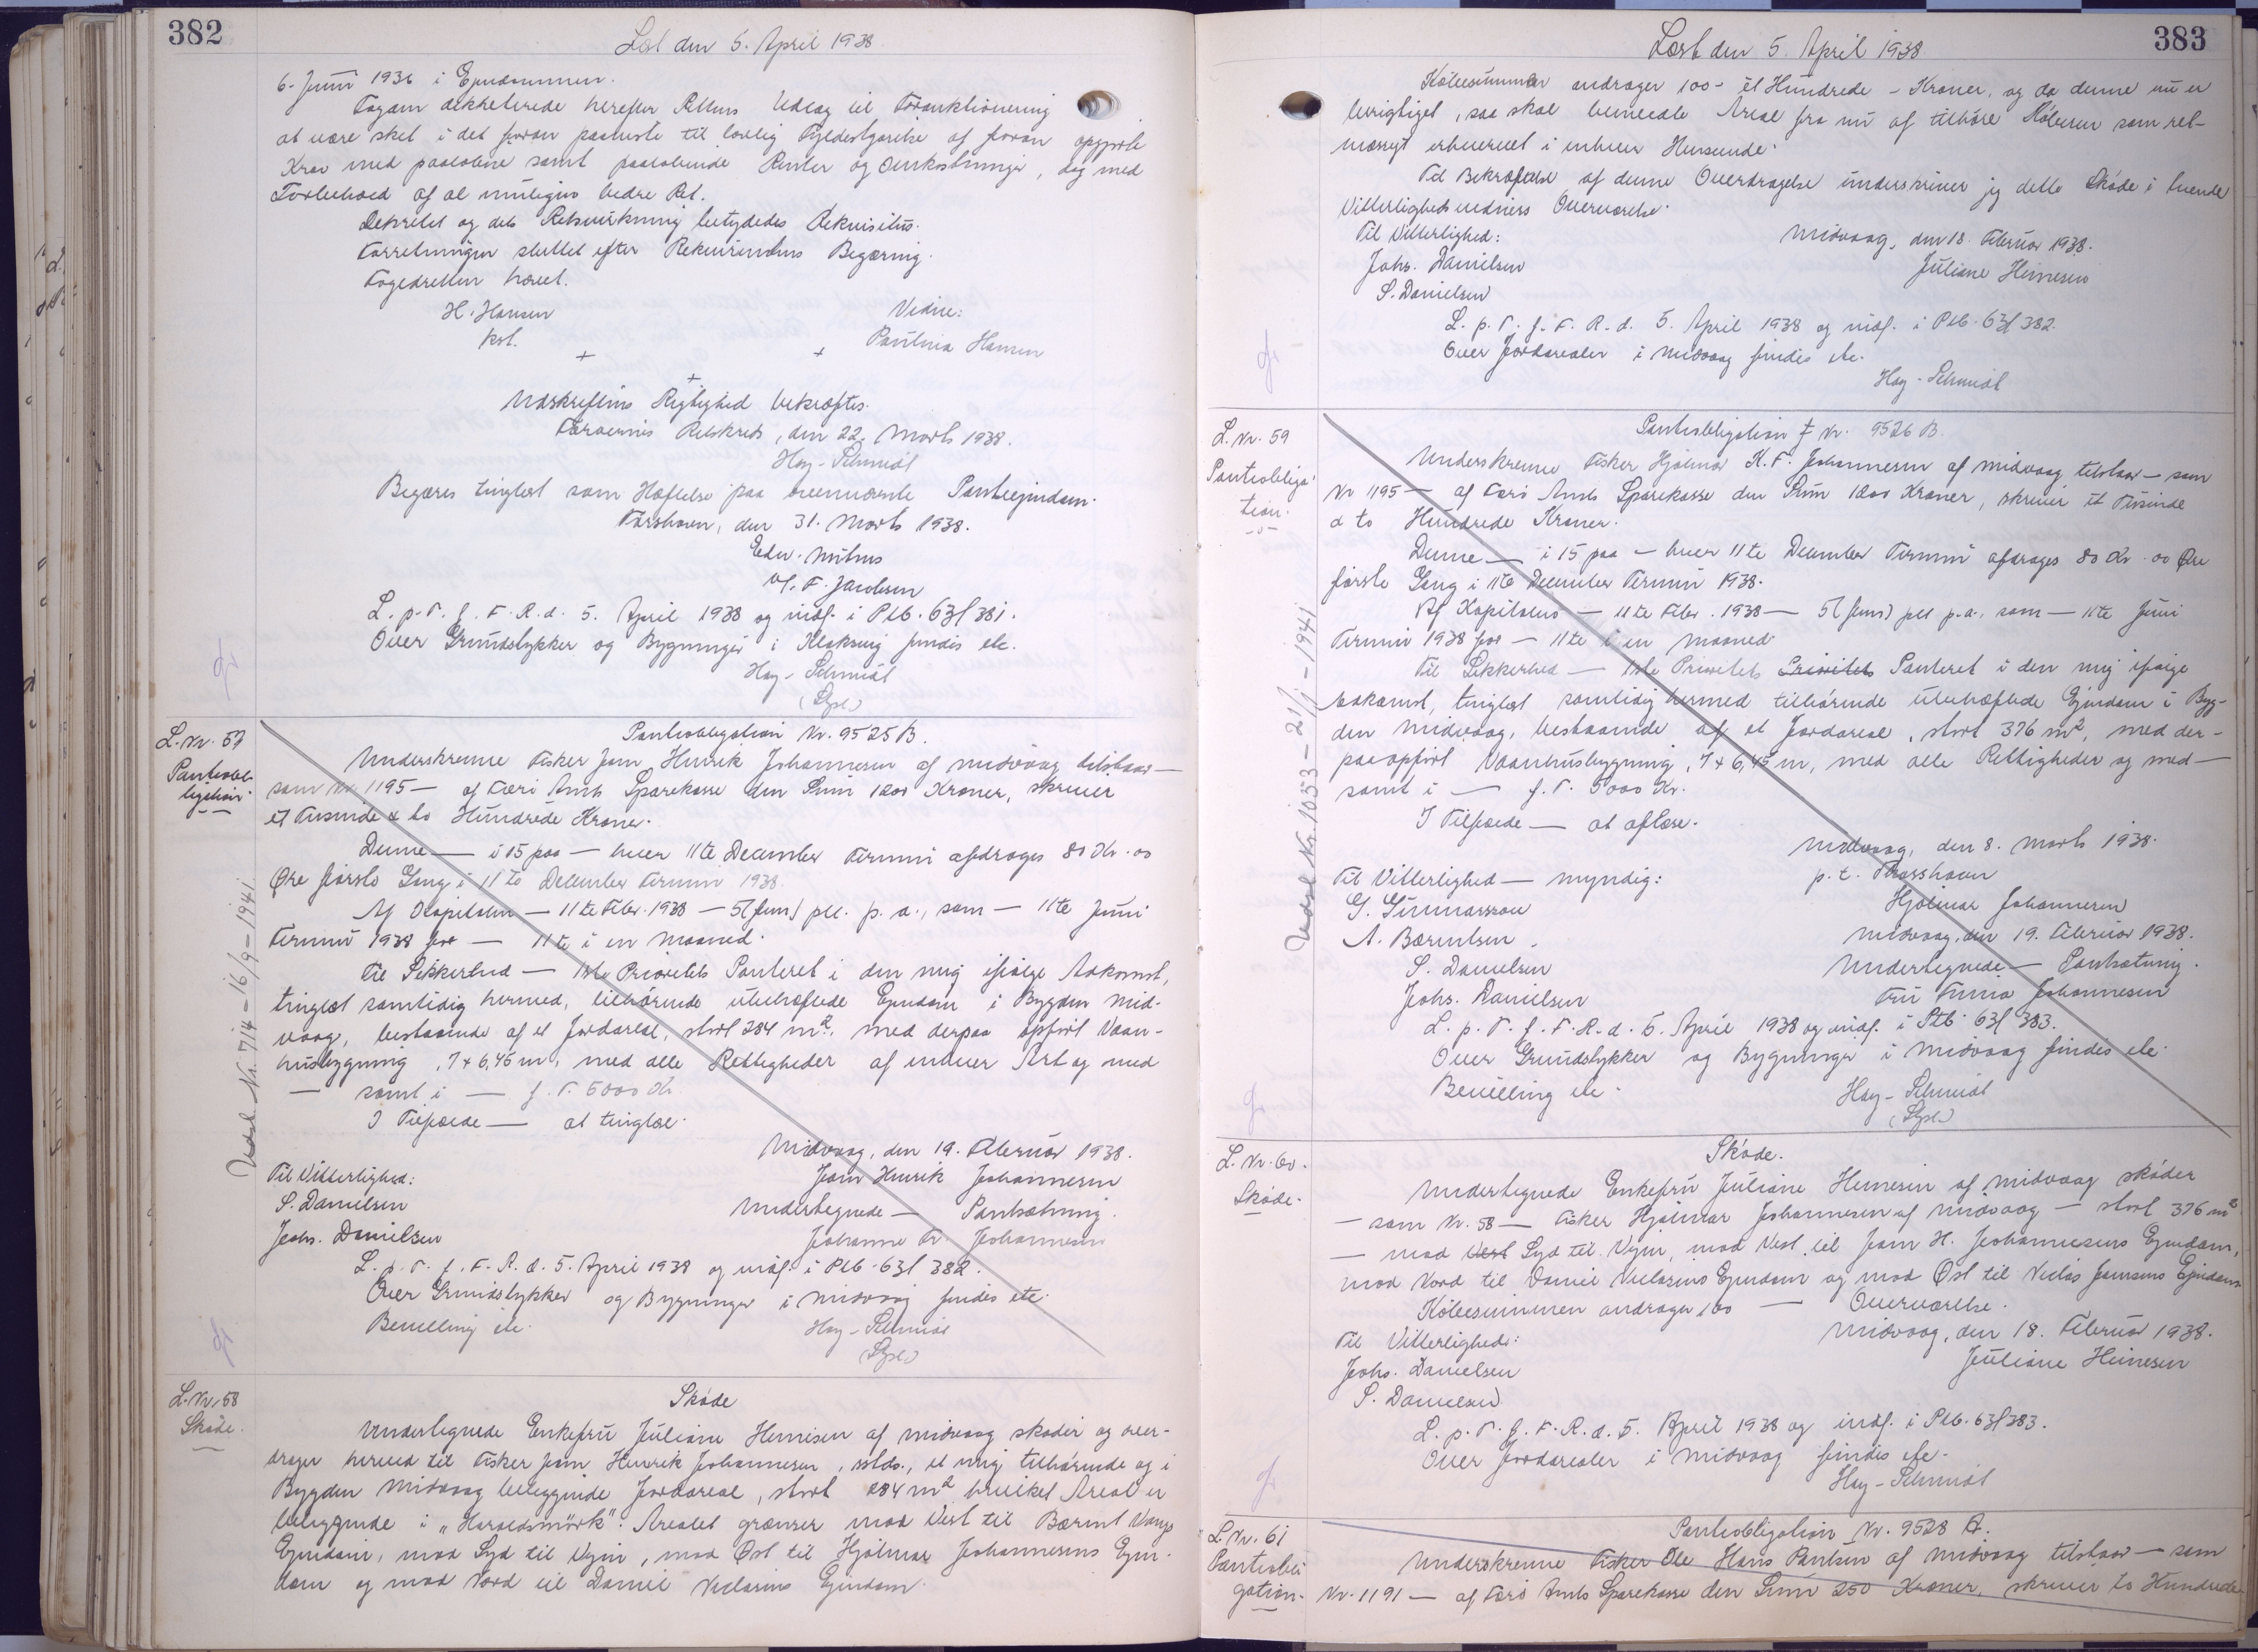 382
Læst den 5. April 1938
6. Juni 1936 i Ejendommen.
Fogden dekreterede herefter Rettens Udlæg til Forauktionering
at være sket i det foran paaviste til lovlig Fyldestgørelse af foran opgjorte
Krav med paaløbne samt paaløbende Renter og Omkostninger, dog med
Forbehold af al muligvis bedre Ret.
Dekretet og dets Retsvirkning betydedes Rekvisitus.
Forretningen sluttet efter Rekvirentens Begæring.
Fogedretten hævet.
H. Hansen
kst.
Vidne:
Paulina Hansen
+ + +
Udskriftens Rigtighed bekræftes.
Færøernes Retskreds, den 22. Marts 1938.
Høy-Schmidt
Begæres tinglæst som Hæftelse paa ovennævnte Panteejendom.
Tórshavn, den 31. Marts 1938.
Edw. Mitens
v/. F. Jacobsen
L. p. T. f. F. R. d. 5. April 1938 og indf. i Ptb. 63f 381.
Over Grundstykker og Bygninger i Klaksvig findes etc.
Høy-Schmidt
(Stpl.)
L. Nr. 57
Panteobligation
Udsl. Nr. 714 - 16/9 - 1941
Pantobligation Nr. 9525 B.
Underskrevne Fisker Joen Henrik Johannesen af Midvaag tilstaar —
som Nr. 1195 — af Færø Amts Sparekasse den Sum 1200 Kroner, skriver
et Tusinde & to Hundrede Kroner.
Denne — i 15 paa — hver 11te December Termin afdrages 80 Kr. 00
Øre første Gang i 11te December Termin 1938.
Af Kapitalen — 11te Febr. 1938 — 5 (fem) pct. p. a., som — 11te Juni
Termin 1938 for — 11te i en Maaned.
Til Sikkerhed — 1ste Prioritets Panteret i den mig ifølge Adkomst,
tinglæst samtidig hermed, tilhørende ubehæftede Ejendom i Bygden Mid-
vaag, bestaaende af et Jordareal, stort 284 m², med derpaa opført Vaan-
husbygning, 7 x 6,45 m, med alle Rettigheder af enhver Art og med
— samt i — f. T. 5000 Kr.
I Tilfælde — at tinglæse.
Midvaag, den 19. Februar 1938.
Til Vitterlighed:
Joen Henrik Johannesen
S. Danielsen
Undertegnede — Pantsætning.
Johs. Danielsen
Johanne Fr. Johannesen
L. p. T. f. F. R. d. 5. April 1938 og indf. i Ptb. 63f 382.
Over Grundstykker og Bygninger i Midvaag findes etc.
Bevilling etc.
Høy-Schmidt
(Stpl.)
L. Nr. 58
Skøde.
Skøde
Undertegnede Enkefru Juliane Heinesen af Midvaag skøder og over-
drager herved til Fisker Joen Henrik Johannesen, sstds., et mig tilhørende og i
Bygden Midvaag beliggende Jordareal, stort 284 m² hvilket Areal er
beliggende i "Haraldsmørk". Arealet grænser mod Vest til Bærent Vangs
Ejendom, mod Syd til Vejen, mod Øst til Hjalmar Johannesens Ejen-
dom og mod Nord til Daniel Niclasens Ejendom.
383
Læst den 5. April 1938
Købesummen andrager 100 - et Hundrede - Kroner, og da denne nu er
berigtiget, saa skal bemeldte Areal fra nu af tilhøre Køberen som ret-
mæssigt erhvervet i enhver Henseende.
Til Bekræftelse af denne Overdragelse underskriver jeg dette Skøde i tvende
Vitterlighedsvidners Overværelse.
Til Vitterlighed:
Midvaag, den 18. Februar 1938.
Johs. Danielsen
Juliane Heinesen
S. Danielsen
L. p. T. f. F. R. d. 5. April 1938 og indf. i Ptb. 63f 382.
Over Jordarealer i Midvaag findes etc.
Høy-Schmidt
L. Nr. 59
Panteobliga-
tion.
Udsl. Nr. 1053 - 21/ - 1941
Pantobligation Nr. 9526 B.
Underskrevne Fisker Hjalmar K. F. Johannesen af Midvaag tilstaar — som
Nr 1195 — af Færø Amts Sparekasse den Sum 1200 Kroner, skriver et Tusinde
& to Hundrede Kroner.
Denne — i 15 paa — hver 11te December Termin afdrages 80 Kr. 00 Øre
første Gang i 11te December Termin 1938.
Af Kapitalen — 11te Febr. 1938 — 5 (fem) pct p.a., som — 11te Juni
Termin 1938 for — 11te i en Maaned.
Til Sikkerhed — 1ste Prioritets Prioritets Panteret i den mig ifølge
Adkomst, tinglæst samtidig hermed tilhørende ubehæftede Ejendom i Byg-
den Midvaag, bestaaende af et Jordareal, stort 376 m², med der-
paa opført Vaanhusbygning, 7 x 6,45 m, med alle Rettigheder og med —
samt i — f. T. 5000 Kr.
I Tilfælde — at aflæse.
Midvaag, den 8. Marts 1938.
p. t. Thorshavn
Til Vitterlighed — myndig:
G. Gunnarsson
Hjalmar Johannesen
A. Bærentsen.
Midvaag, den 19. Februar 1938.
S. Danielsen
Undertegnede — Pantsætning.
Johs. Danielsen
Fru Anna Johannesen
L. p. T. f. F. R. d. 5. April 1938 og indf. i Ptb. 63f 383.
Over Grundstykker og Bygninger i Midvaag findes etc.
Bevilling etc.
Høy-Schmidt
(Stpl.)
L. Nr. 60.
Skøde.
Skøde.
Undertegnede Enkefru Juliane Heinesen af Midvaag skøder
— som Nr. 58 — Fisker Hjalmar Johannesen af Midvaag — stort 376 m²
— mod Vest Syd til Vejen, mod Vest til Joen H. Johannesens Ejendom,
mod Nord til Daniel Niclasens Ejendom og mod Øst til Niclas Joensens Ejendom.
Købesummen andrager 100 — Overværelse.
Til Vitterlighed:
Midvaag, den 18. Februar 1938.
Johs. Danielsen
Juliane Heinesen
S. Danielsen
L. p. T. f. F. R. d. 5. April 1938 og indf. i Ptb. 63f 383.
Over Jordarealer i Midvaag findes etc.
Høy-Schmidt
L. Nr. 61
Panteobli
gation.
Pantobligation Nr. 9528 A.
Underskrevne Fisker Ole Hans Paulsen af Midvaag tilstaar — som
Nr. 1191 — af Færø Amts Sparekasse den Sum 250 Kroner, skriver to Hundrede